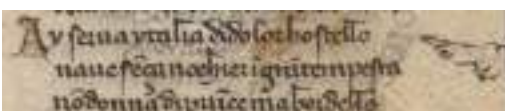 Ay serua ytalia di dolor hostello
naue sēça nochier ī grā tempesta
nō donna di puīce ma bordello